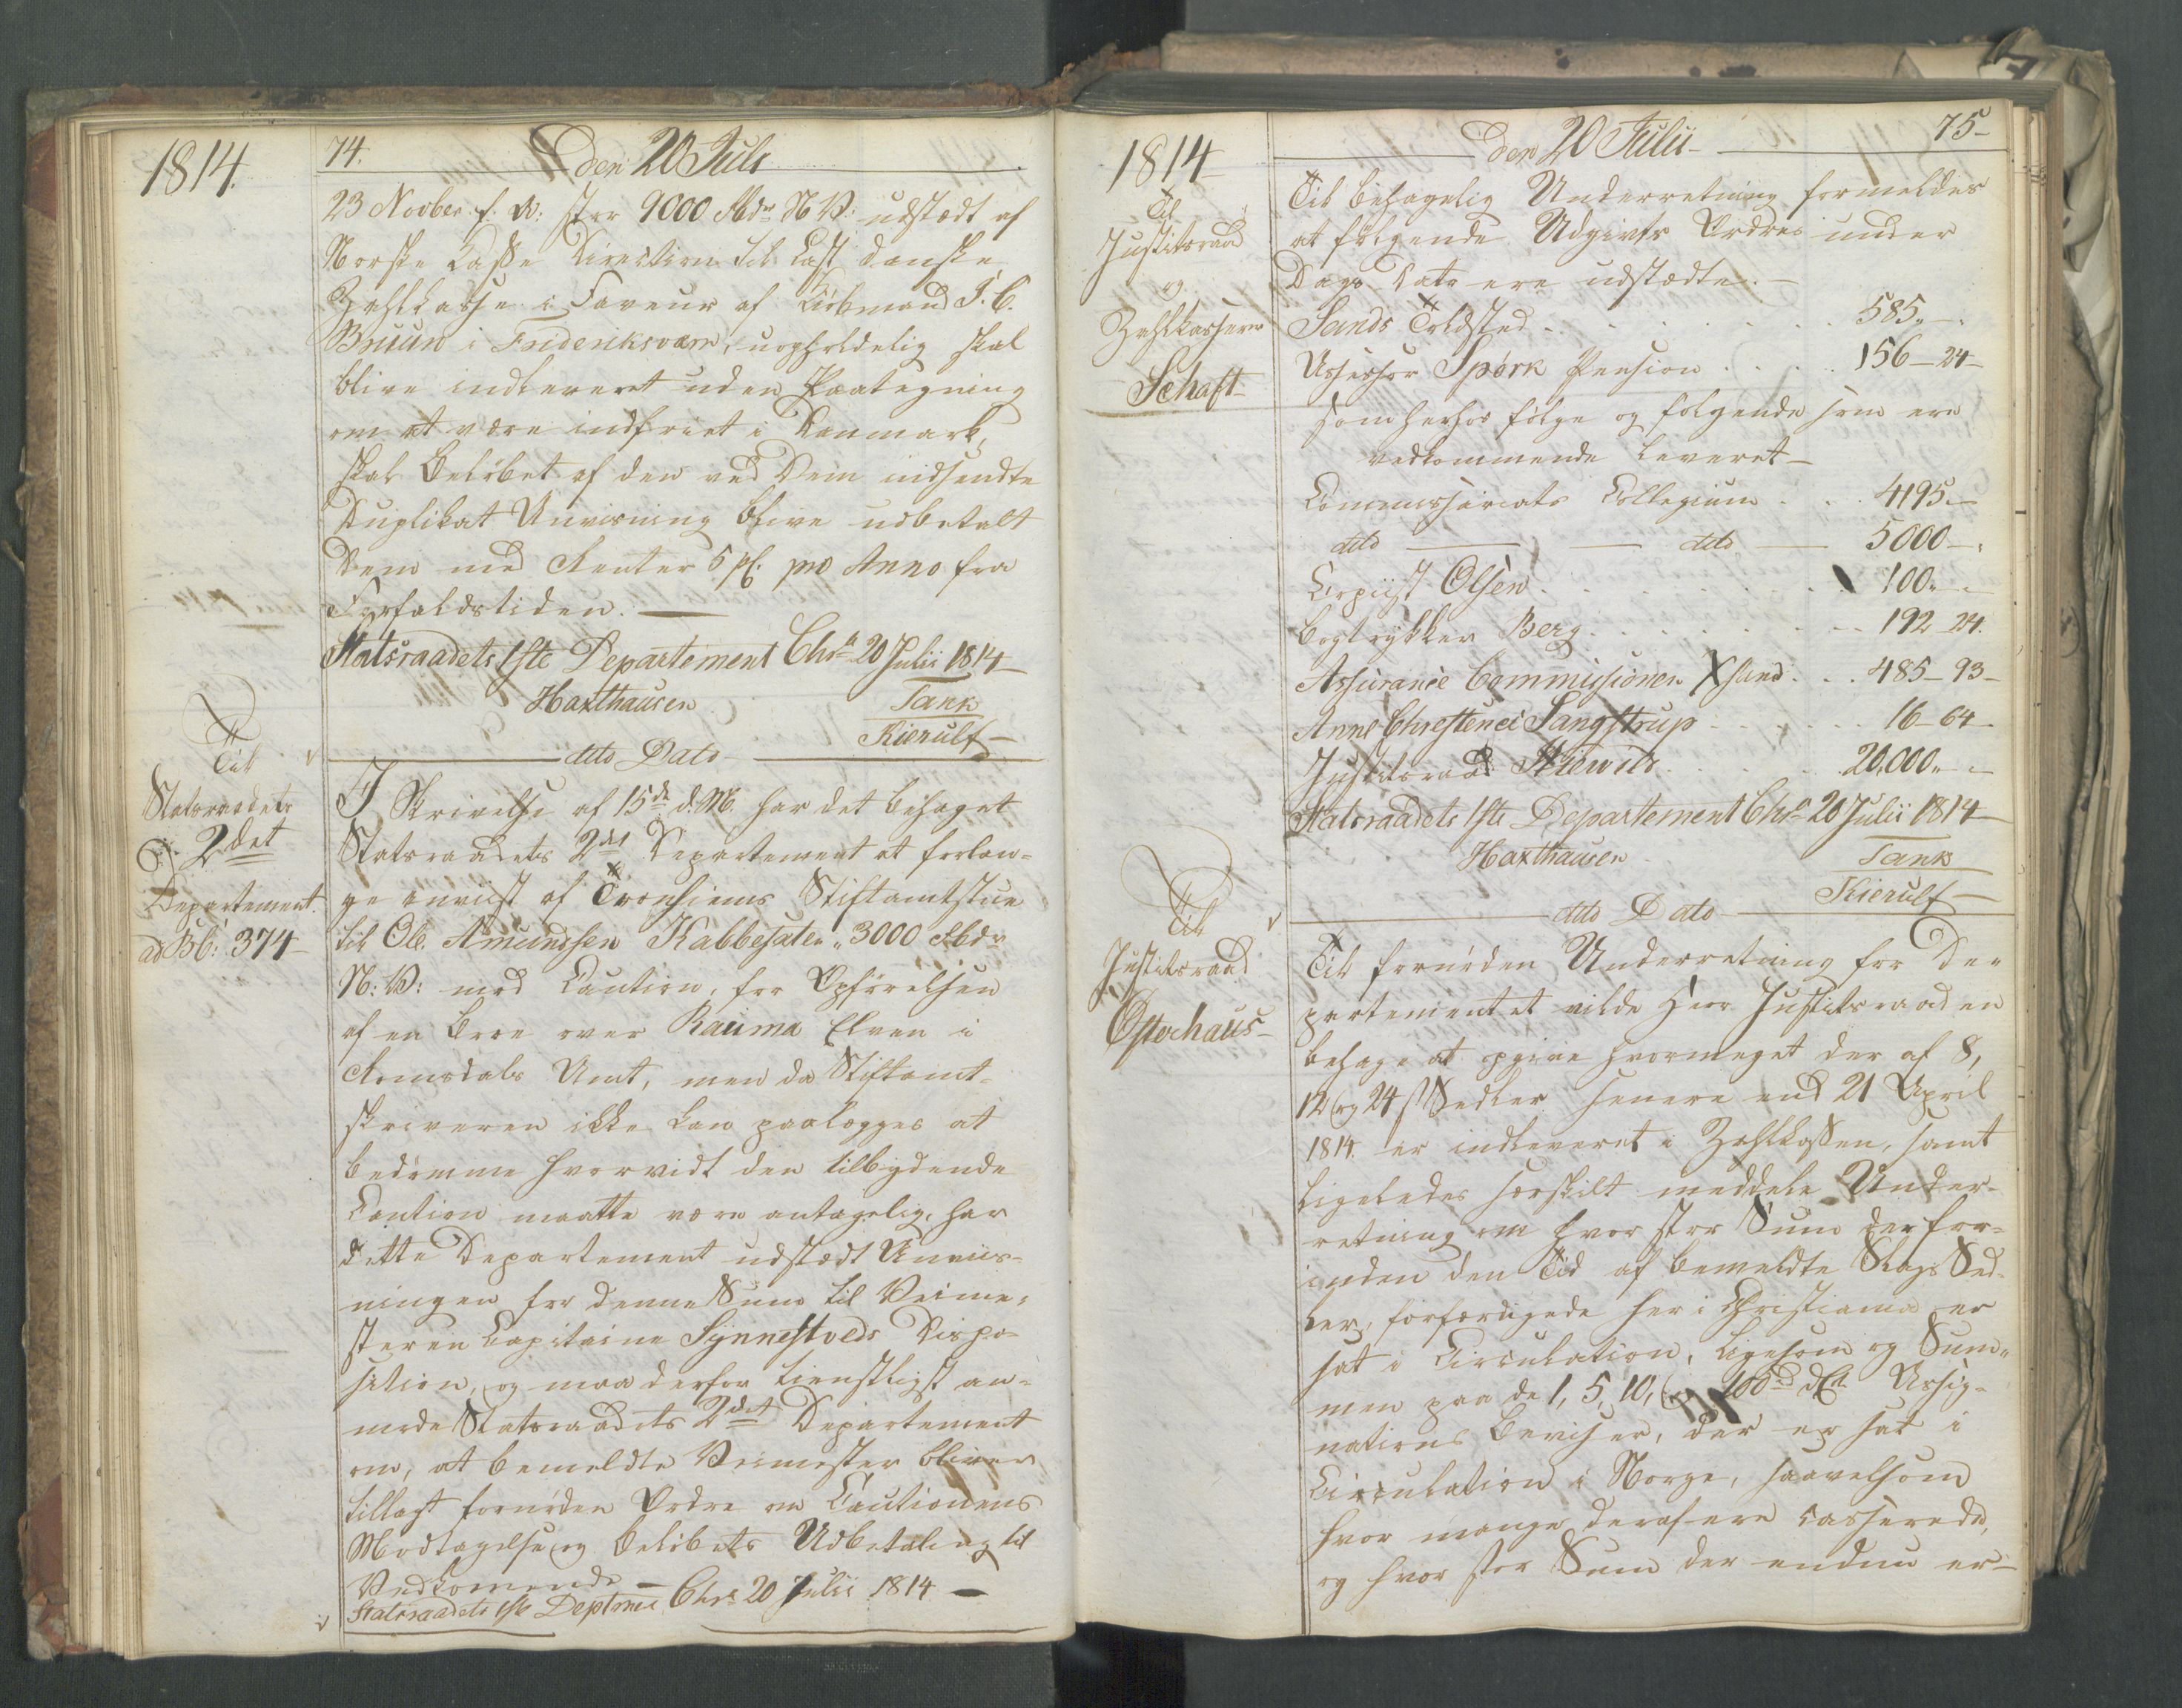 1814.
74.
den 20 Juli
23 Novber f. A: stor 9000 Rbdr N V: udstædt af
Norske Casse Direction til Last danske
Zahlkasse i Faveur af Kiöbmand J. C.
Bruun i Frideriksværn, uopholdelig skal
blive indleveret uden Paategning
om at være indfriet i Danmark,
skal Belöbet af den ved Dem indsendte
Duplikat Anvisning blive udbetalt
Dem med Renter 5 pC. pro Anno fra
Forfaldstiden. —
Statsraadets 1ste Departement Chra 20 Julii 1814 —
Haxthausen Tank
Kierulf —
dito Dato
Til
Statsraadets
2det
Departement.
ad Bb: 374 —
I Skrivelse af 15de d. M. har det behaget
Statsraadets 2det Departement at forlan-
ge anviist af Tronhiems Stiftamtstue
til Ole Amundssen Kabbesæter 3000 Rbdr
N: V: mod Caution, for Opförelsen
af en Broe over Rauma Elven i
Romsdals Amt, men da Stiftamt-
skriveren ikke kan paalægges at
bedömme hvorvidt den tilbydende
Caution maatte være antagelig, har
dette Departement udstædt Anviis-
ningen for denne Sum til Veime-
steren Capitaine Synnestveds Dispo-
sition, og maa derfor tienstligst an-
mode Statsraadets 2det Departement
om, at bemeldte Veimester bliver
tillagt fornöden Ordre om Cautionens
Modtagelse og Belöbets Udbetaling til
Vedkommende —
Statsraadets 1ste Deptmt Chra 20 Julii 1814 —
1814
75
den 20 Julii
Til
Justitsraad
og
Zahlkasserer
Schaft
Til behagelig Underretning formeldes
at fölgende Udgivts Ordres under
Dags Dato ere udstædte. —
Sands Toldsted . . . 585 „ —
Assessor Spörk Pension . . . . 156 — 24 —
som herhos fölge og fölgende som ere
vedkommende leveret —
Commissariats Collegium . . . 4195. —
dito — dito — 5000 —
Copiist Olsen . . . 100 „ —
Bogtrykker Berg . . . 192 — 24.
Assurance Commissionen Xsand . . . 485 — 93 —
Anne Chrestence Sangstrup . . . 16 — 64 —
Justitsraad . . . 20,000 „ —
Statsraadets 1ste Departement Chra 20 Julii 1814 —
Haxthausen Tank
Kierulf —
dito Dato
Til
Justitsraad
Ostochaus —
Til fornöden Underretning for De-
partementet vilde Herr Justitsraaden
behage at opgive hvormeget der af 8,
12 og 24 s Sedler senere end 21 April
1814 er indleveret i Zahlkassen, samt
ligeledes særskilt meddele Under-
retning om hvor stor Sum der for-
inden den Tid af bemeldte Slags Sed-
ler, forfærdigede her i Christiania er
sat i Circulation, ligesom og Sum-
men paa de 1, 5, 10, og 100 Assig-
nations Beviser, der er sat i
Circulation i Norge, saavelsom
hvor mange deraf ere casserede,
og hvor stor Sum der endnu er —